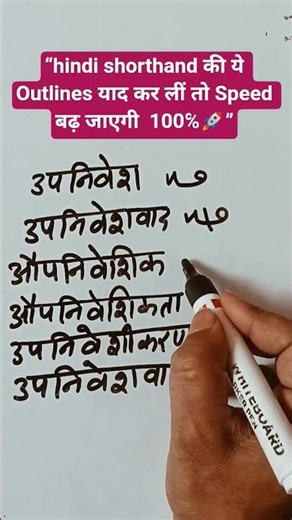 “hindi shorthand की ये
Outlines याद कर लीं तो Speed
बढ़ जाएगी 100%🚀”
उपनिवेश
उपनिवेशवाद
औपनिवेशिक
औपनिवेशिकता
उपनिवेशीकरण
उपनिवेशवा
WHITEBOARD
MARKER PEN